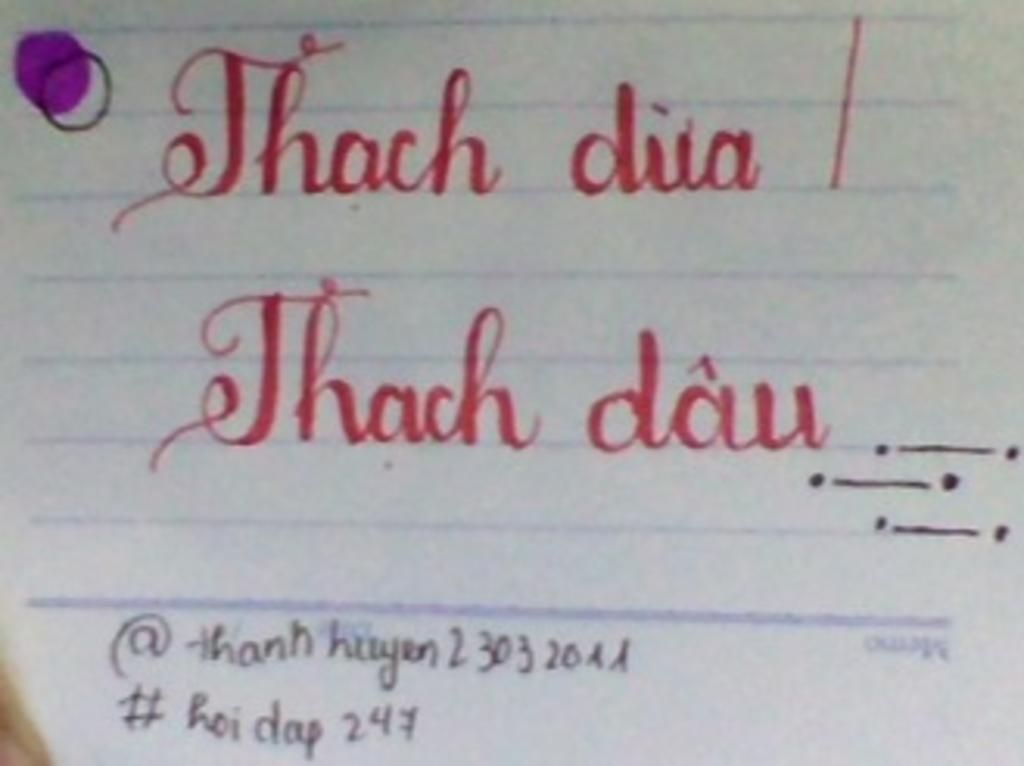 Thạch dừa
Thạch dâu
@thanhhuyen23032011
#hoidap247
Memo